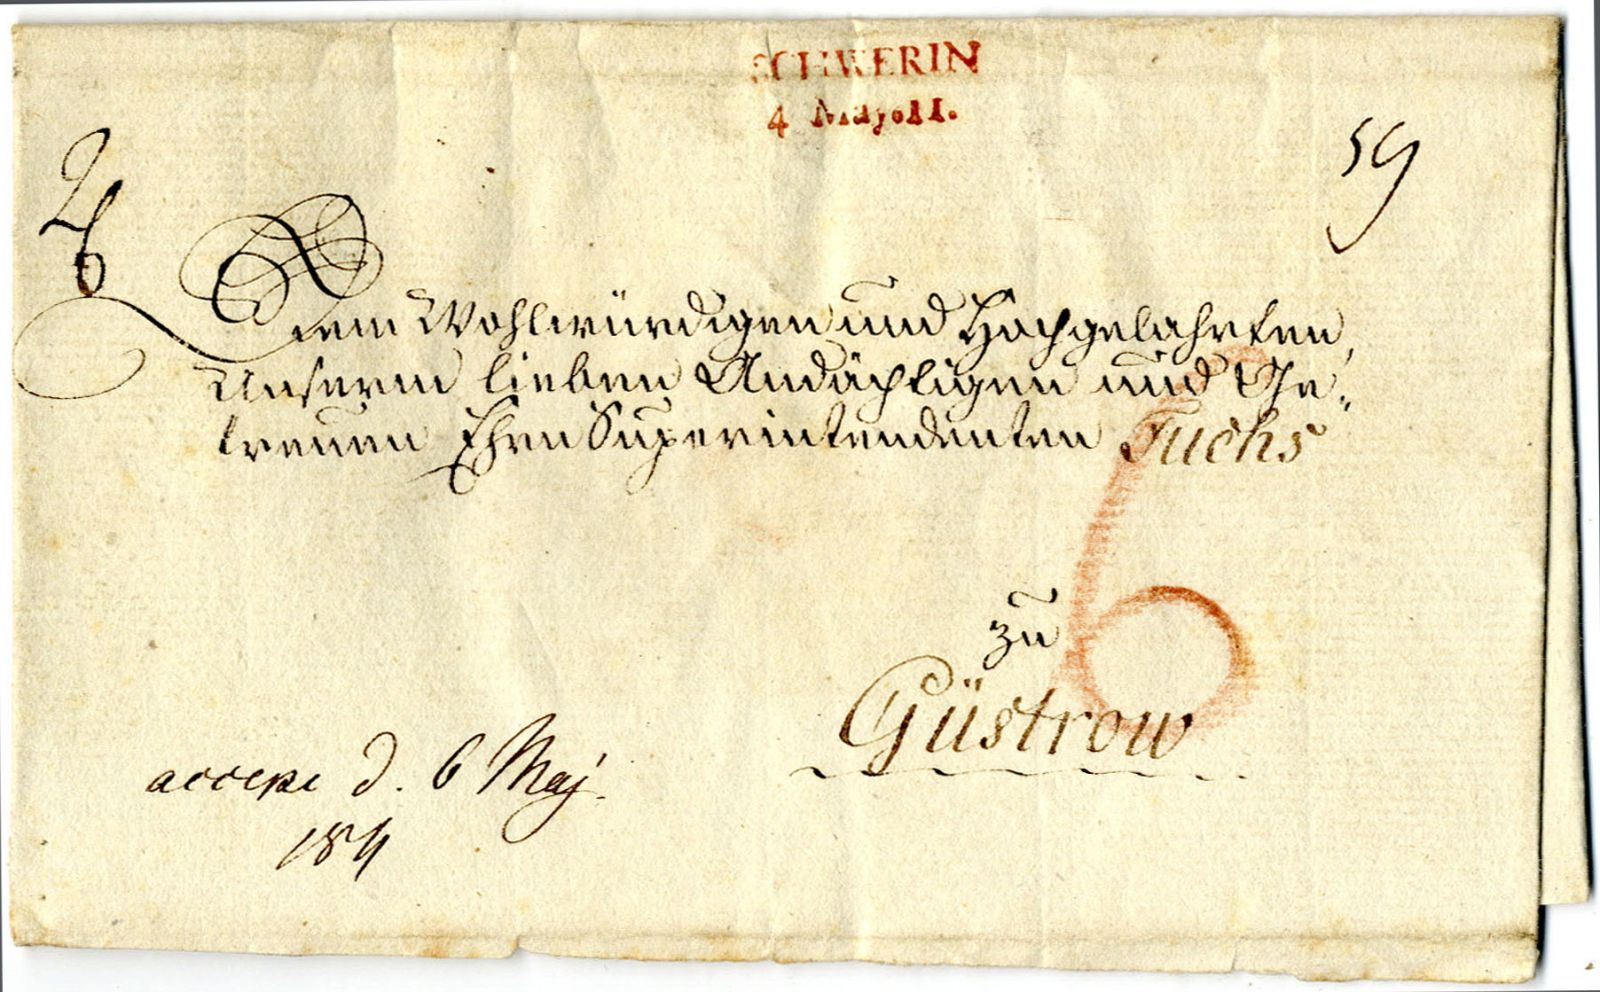 SCHWERIN
4 May 811.
59
Dem Wohlwürdigen und Hochgelahrten,
Unserm lieben Andächtigen und Ge-
treuen Ehrn Superintendenten Fuchs
6
zu
Güstrow
accepi d. 6 Maj.
1811